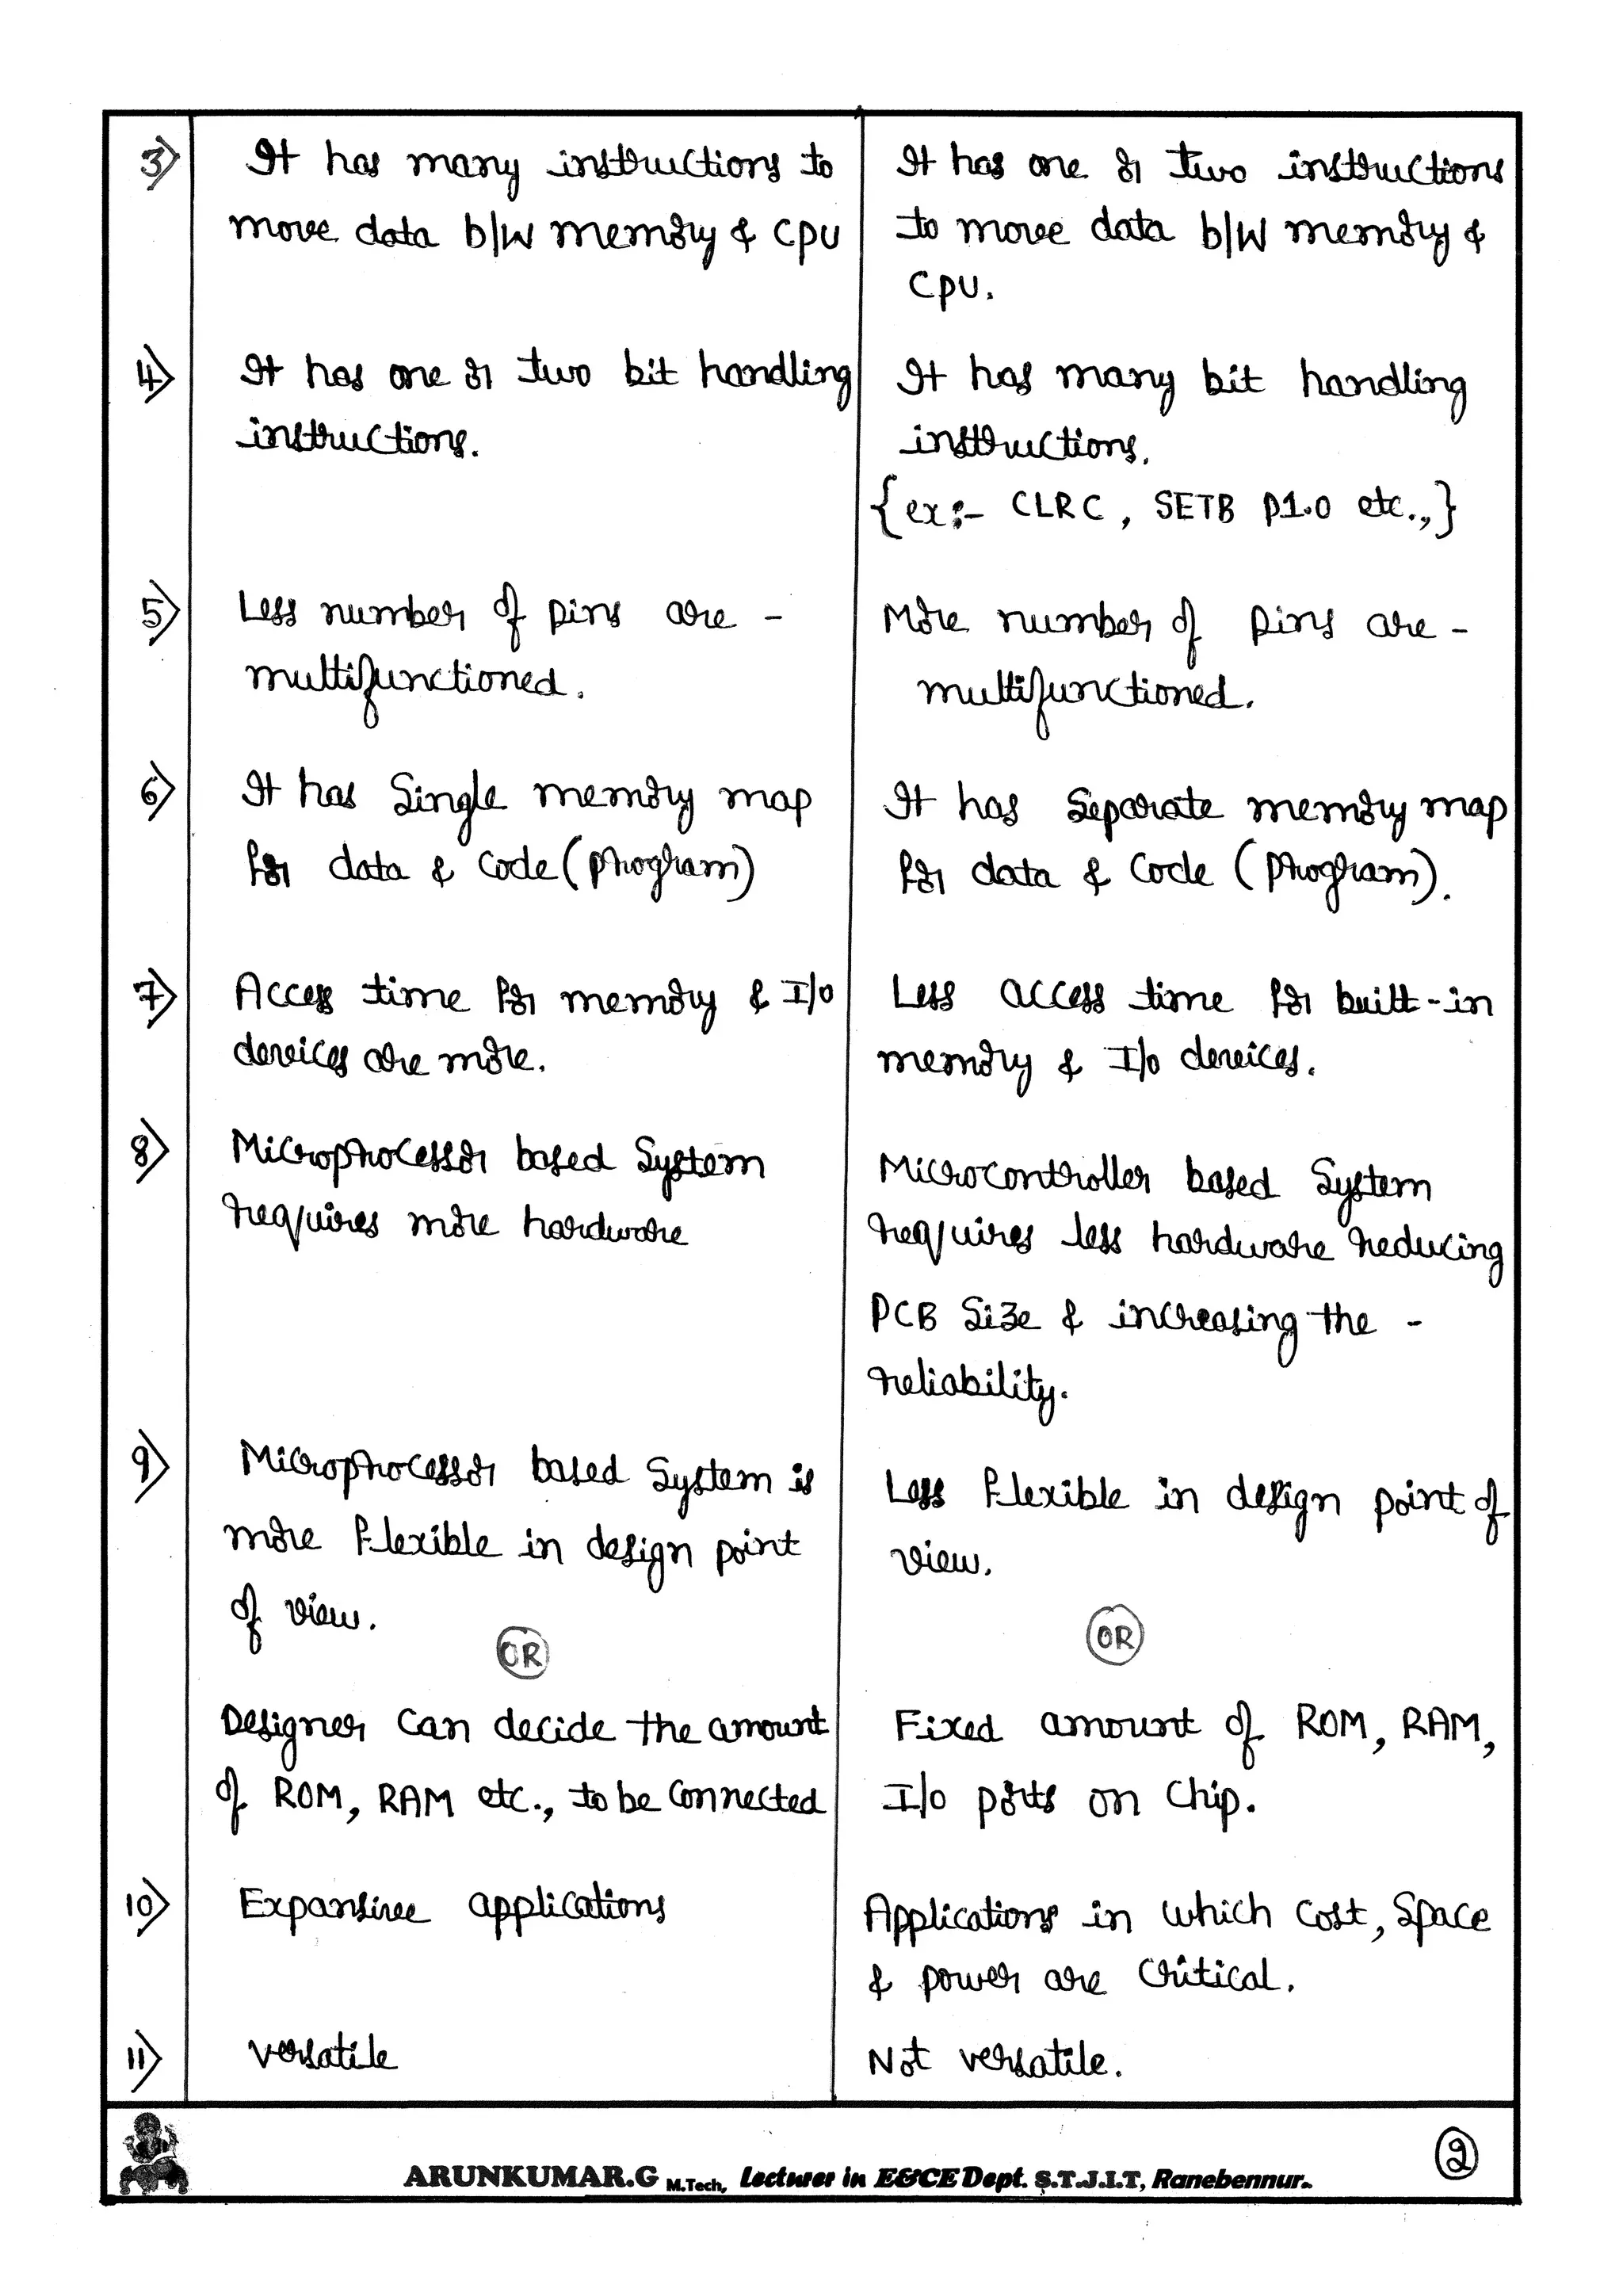 3)
It has many instructions to
move data b/w memory & CPU
It has one or two instructions
to move data b/w memory &
CPU.
4)
It has one or two bit handling
instructions.
It has many bit handling
instructions.
{ex:- CLRC, SETB P1.0 etc.,}
5)
Less number of pins are -
multifunctioned.
More number of pins are -
multifunctioned.
6)
It has Single memory map
for data & Code (program)
It has Separate memory map
for data & Code (program).
7)
Access time for memory & I/o
devices are more.
Less access time for built-in
memory & I/o devices.
8)
Microprocessor based System
requires more hardware
Microcontroller based System
requires less hardware reducing
PCB Size & increasing the -
reliability.
9)
Microprocessor based System is
more flexible in design point
of view.
OR
Designer Can decide the amount
of ROM, RAM etc., to be Connected
Less flexible in design point of
view.
OR
Fixed amount of ROM, RAM,
I/o ports on Chip.
10)
Expansive applications
Applications in which Cost, Space
& power are Critical.
11)
Versatile
Not versatile.
ARUNKUMAR.G M.Tech, Lecturer in E&CE Dept. S.T.J.I.T, Ranebennur.
2